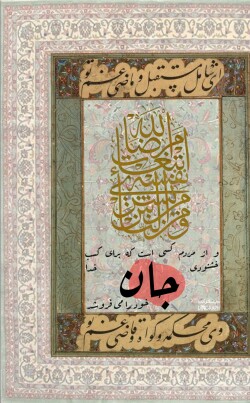 ای شامل مستقبل و ماضی غم تو
و من الناس من یشری نفسه ابتغاء مرضات الله
و از مردم کسی است که برای کسب
خشنودی خدا
جان
خود را می فروشد